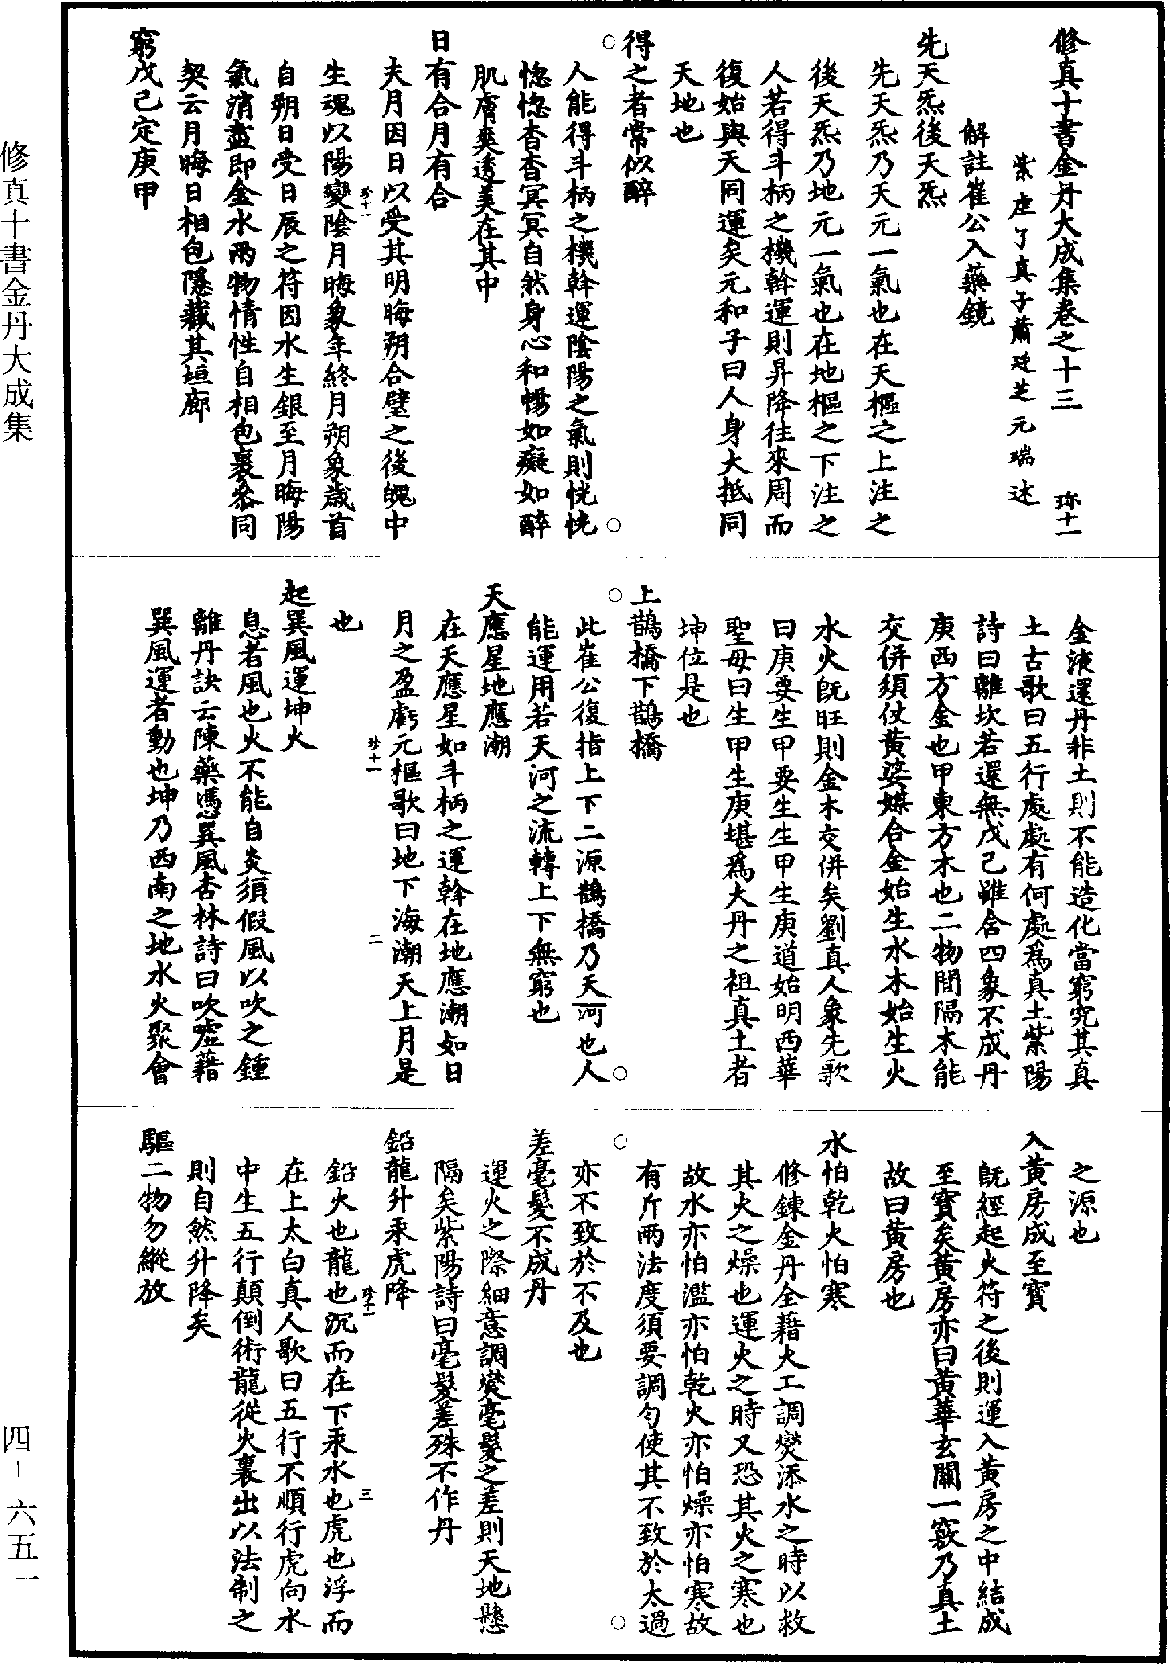 修真十書金丹大成集卷之十三 珎十一
紫虛了真子蕭廷芝元瑞述
解註崔公入藥鏡
先天炁後天炁
先天炁乃天元一氣也在天樞之上注之
後天炁乃地元一氣也在地樞之下注之
人若得斗柄之機斡運則昇降往來周而
復始與天同運矣元和子曰人身大抵同
天地也
得之者常似醉
人能得斗柄之機斡運陰陽之氣則恍恍
惚惚杳杳冥冥自然身心和暢如癡如醉
肌膚爽透美在其中
日有合月有合
夫月因日以受其明晦朔合璧之後魄中
生魂以陽變陰月晦象年終月朔象歲首
自朔日受日辰之符因水生銀至月晦陽
氣消盡即金水兩物情性自相包裹叅同
契云月晦日相包隱藏其垣廓
窮戊己定庚甲
金液還丹非土則不能造化當窮究其真
土古歌曰五行處處有何處為真土紫陽
詩曰離坎若還無戊己雖含四象不成丹
庚西方金也甲東方木也二物間隔木能
交併須仗黃婆媒合金始生水木始生火
水火旣旺則金木交併矣劉真人象先歌
曰庚要生甲要生生甲生庚道始明西華
聖母曰生甲生庚堪為大丹之祖真土者
坤位是也
上鵲橋下鵲橋
此崔公復指上下二源鵲橋乃天河也人
能運用若天河之流轉上下無窮也
天應星地應潮
在天應星如斗柄之運斡在地應潮如日
月之盈虧元樞歌曰地下海潮天上月是
也
珎十一 二
起巽風運坤火
息者風也火不能自炎須假風以吹之鍾
離丹訣云陳藥憑巽風杏林詩曰吹噓藉
巽風運者動也坤乃西南之地水火聚會
之源也
入黃房成至寶
旣經起火符之後則運入黃房之中結成
至寶矣黃房亦曰黃華玄關一竅乃真土
故曰黃房也
水怕乾火怕寒
修鍊金丹全藉火工調燮添水之時以救
其火之燥也運火之時又恐其火之寒也
故水亦怕濫亦怕乾火亦怕燥亦怕寒故
有斤兩法度須要調勻使其不致於太過
亦不致於不及也
差毫髮不成丹
運火之際細意調燮毫髮之差則天地懸
隔矣紫陽詩曰毫髮差殊不作丹
鉛龍升汞虎降
珎十一 三
鉛火也龍也沉而在下汞水也虎也浮而
在上太白真人歌曰五行不順行虎向水
中生五行顛倒術龍從火裏出以法制之
則自然升降矣
驅二物勿縱放
修真十書金丹大成集
四－六五一